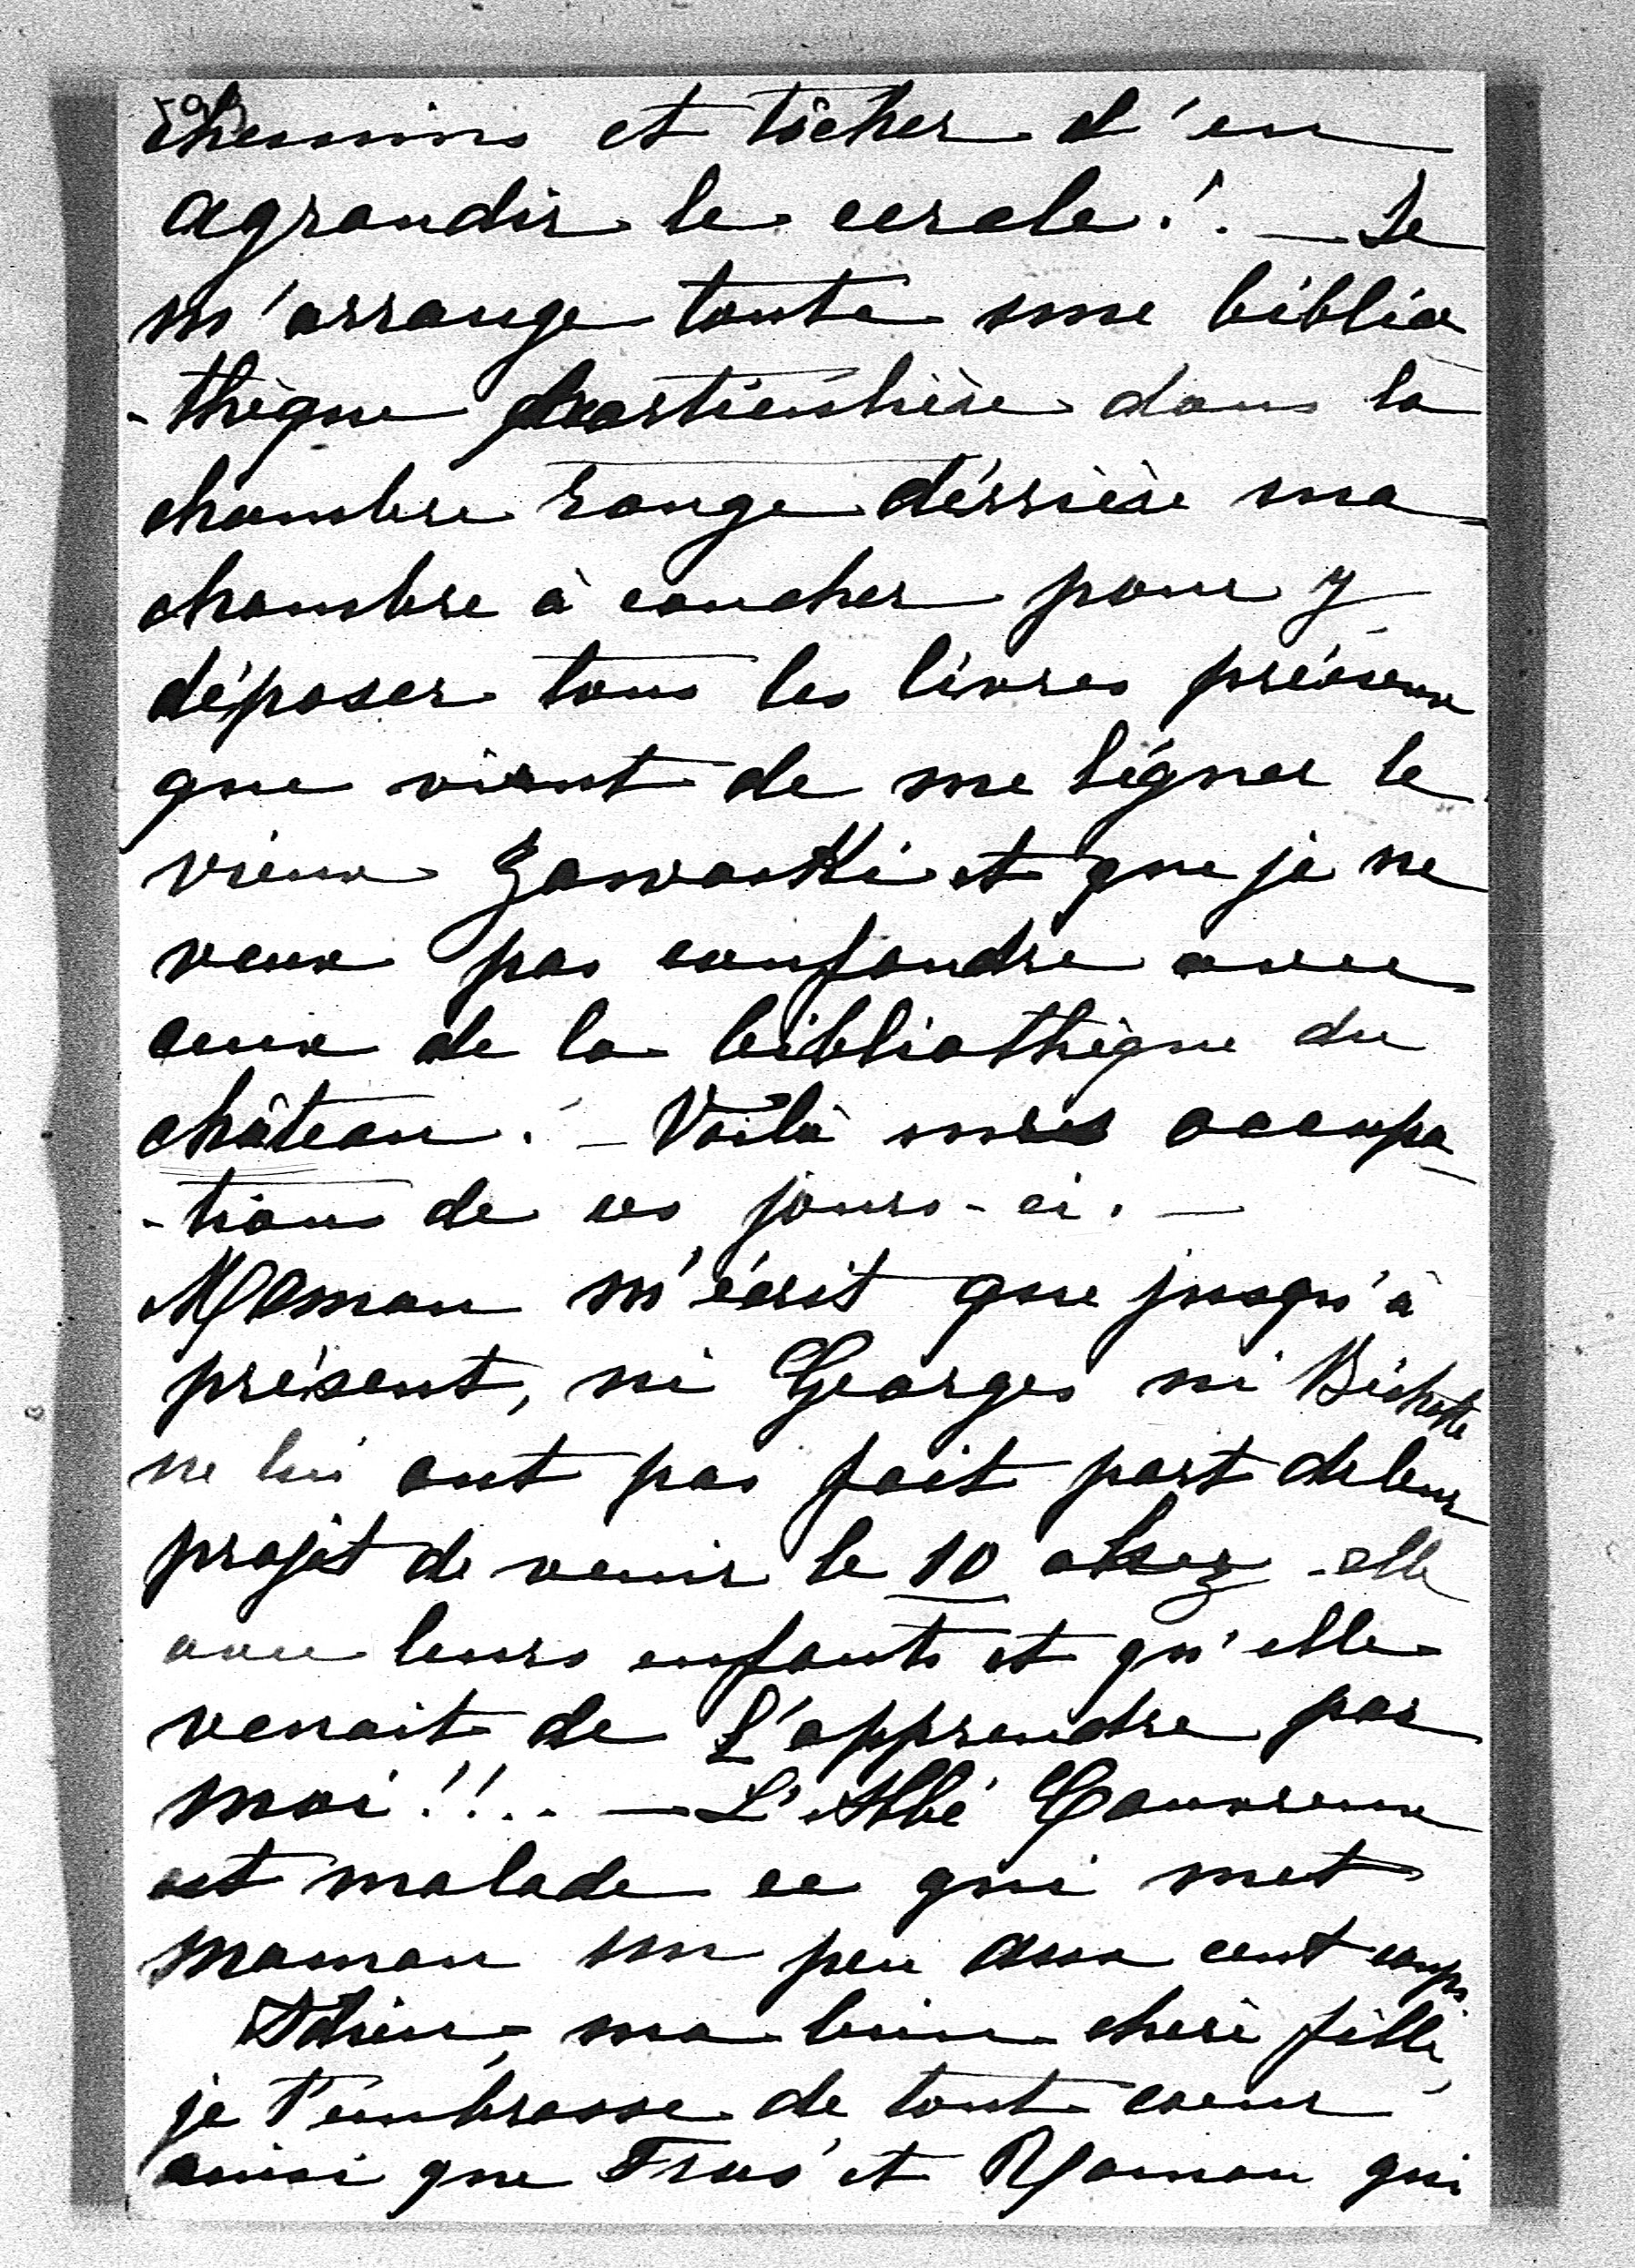 chemins et tâcher d'en
agrandir le cercle! — Je
m'arrange toute une biblio
-thèque particulière dans la
chambre rouge dérrière ma
chambre à coucher pour y
déposer tous les livres précieux
que vient de me léguer le
vieux et que je ne
veux pas confondre avec
ceux de la bibliothèque du
château! — Voilà mes occupa
-tions de ces jours-ci. —
Maman m'écrit que jusqu'à
présent, ni Georges ni Bichette
ne lui ont pas fait part de leur
projet de venir le 10 chez elle
avec leurs enfants et qu'elle
venait de L'apprendre par
moi!!.. — L'Abbé
est malade ce qui met
maman un peu aux cent coups.
Adieu, ma bien chérie fille,
je t'embrasse de tout coeur
ainsi que et Roman qui